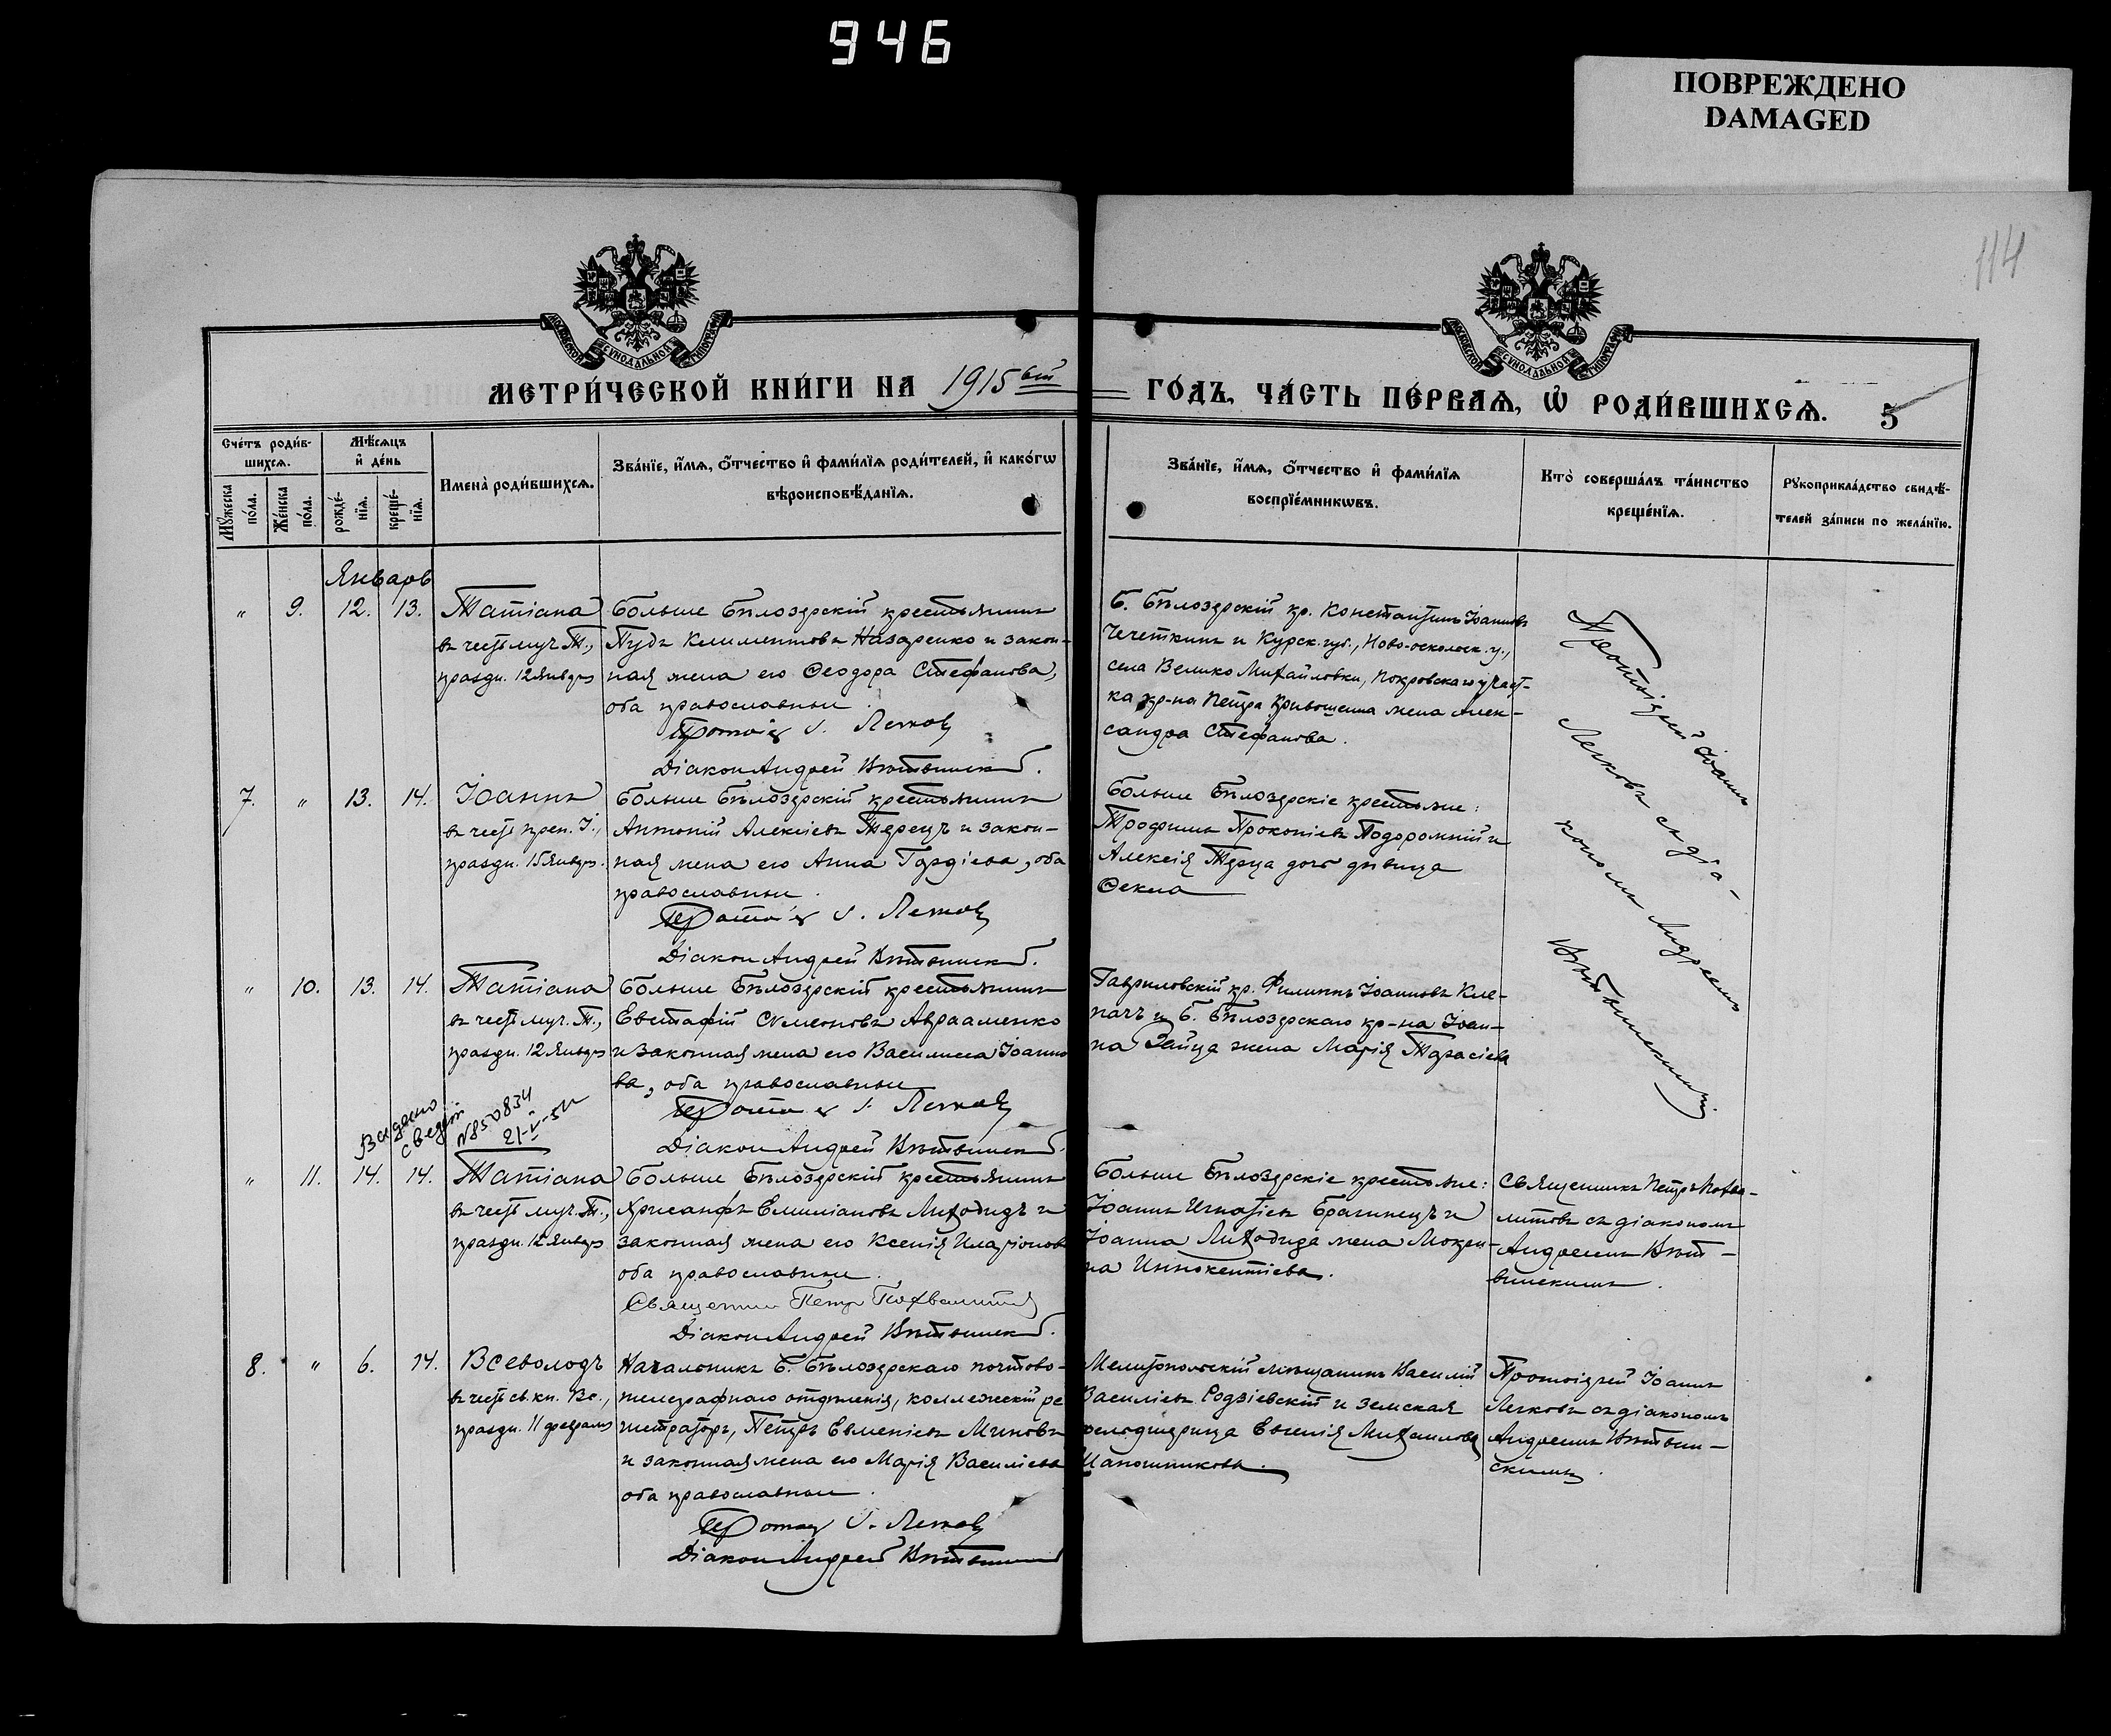 946
ПОВРЕЖДЕНО
DAMAGED
114
МОСКОВСКОЙ СѴНОДАЛЬНОЙ ТИПОГРАФІИ
МОСКОВСКОЙ СѴНОДАЛЬНОЙ ТИПОГРАФІИ
МЕТРИ́ЧЕСКОЙ КНИ́ГИ НА 1915 ый ГО́ДЪ, ЧА́СТЬ ПЕ́РВАѦ, Ѡ҆ РОДИ́ВШИХСѦ. 5
Сче́тъ роди́в-
шихсѧ.
Мѣ́сѧцъ
и҆ де́нь
Мꙋ́жеска
по́ла.
Же́нска
по́ла.
рожде́-
нїѧ.
креще́-
нїѧ.
Имена̀ роди́вшихсѧ.
Зва́нїе, и҆́мѧ, ѻ҆́тчество и҆ фами́лїѧ роди́телей, и҆ како́гѡ
вѣроисповѣ́данїѧ.
Зва́нїе, и҆́мѧ, ѻ҆́тчество и҆ фами́лїѧ
воспрїе́мникѡвъ.
Кто̀ соверша́лъ та́инство
креще́нїѧ.
Рꙋкоприкла́дство свидѣ́-
телей за́писи по жела́нїю.
Январь
" 9. 12. 13.
Татіана
въ честь муч. Т.,
праздн. 12 Января
Больше Бѣлозерскій крестьянинъ
Пудъ Климентовъ Назаренко и закон-
ная жена его Ѳеодора Стефанова,
оба православные.
Протоіер І. Лежков
Діакон Андрей Вѣтвинскій.
Б. Бѣлозерскій кр. Константинъ Іоанновъ
Чечеткинъ и Курск. губ., Ново-оскольск. у.,
села Велико Михайловки, Покровскаго участ-
ка кр-на Петра Кривошеина жена Алек-
сандра Стефанова.
Протоіерей Іоаннъ
съ діа-
кономъ Андреемъ
Вѣтвинскимъ
7. " 13. 14.
Іоаннъ
въ честь преп. І.,
праздн. 15 Января.
Больше Бѣлозерскій крестьянинъ
Антоній Алексіевъ Терецъ и закон-
ная жена его Анна Гордіева, оба
православные.
Протоіер І. Лежков
Діакон Андрей Вѣтвинскій.
Больше Бѣлозерскіе крестьяне:
Трофимъ Прокопіевъ Подорожній и
Алексія Терца дочь дѣвица
Ѳекла
" 10. 13. 14.
Татіана
въ честь муч. Т.,
праздн. 12 Января
Больше Бѣлозерскій крестьянинъ
Евстафій Сѵмеоновъ Авраменко
и законная жена его Василисса Іоанно
ва, оба православные
Протоіер І. Лежков
Діакон Андрей Вѣтвинскій.
Гавриловскій кр. Филиппъ Іоанновъ Кле-
пачъ и Б. Бѣлозерскаго кр-на Іоан-
на Зайца жена Марія Тарасіева
Выдано
N 850834
" 11. 14. 14.
Татіана
въ честь муч. Т.,
праздн. 12 Января
Больше Бѣлозерскій крестьянинъ
Хрисанфъ Емиліановъ Лиходидъ и
законная жена его Ксенія Иларіонова
оба православные.
Священник Петр Похвалитов
Діакон Андрей Вѣтвинскій.
Больше Бѣлозерскіе крестьяне:
Іоаннъ Игнатіевъ Брагинецъ и
Іоанна Лиходида жена Мокри-
на Иннокентіева.
Священникъ Петръ Похва-
литовъ съ діакономъ
Андреемъ Вѣт-
винскимъ.
8. " 6. 14.
Всеволодъ
въ честь св. кн. Вс.,
праздн. 11 февраля
Начальникъ Б. Бѣлозерскаго почтово-
телеграфнаго отдѣленія, коллежскій ре
гистраторъ, Петръ Евменіевъ Миновъ
и законная жена его Марія Василіева
оба православные.
Протоіер І. Лежков
Діакон Андрей Вѣтвинскій
Мелитопольскій мѣщанинъ Василій
Василіевъ Родзіевскій и земская
фельдшерица Евгенія Михаилова
Шапошникова.
Протоіерей Іоаннъ
съ діакономъ
Андреемъ Вѣтвин-
скимъ.